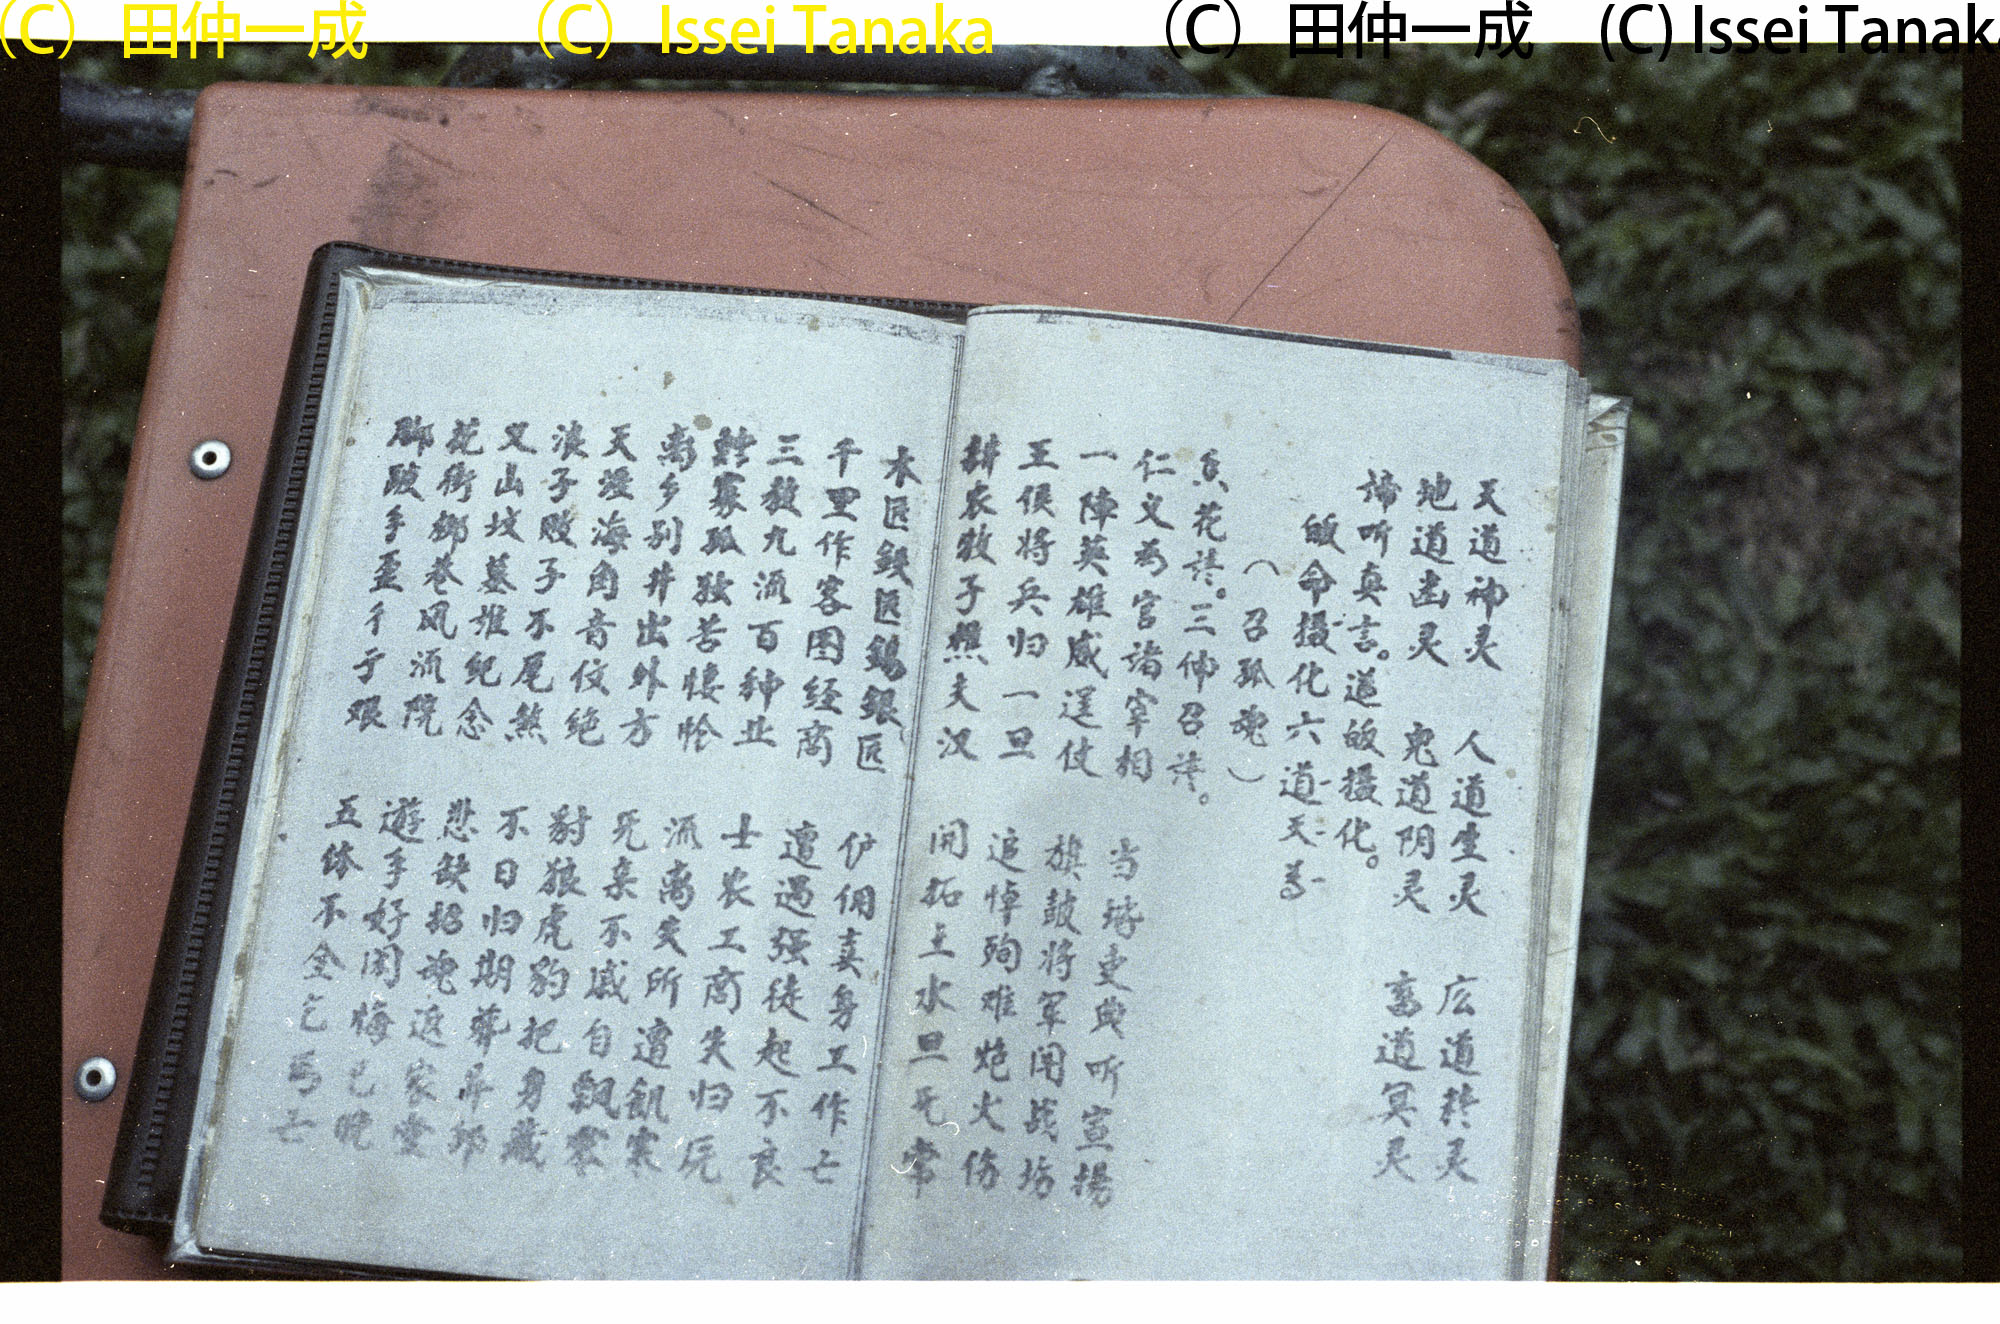 (C) 田仲一成 (C) Issei Tanaka (C) 田仲一成 (C) Issei Tanaka
天道神灵 人道生灵 庅道 灵
地道凶灵 鬼道阴灵 畜道冥灵
谛听真言。道 摄化。
命摄化六道天
(召孤魂)
花 。三伸召 。
仁义为官诸宰相 当 吏典听宣揚
一陣英雄威 仗 旗鼓将军闹战场
王侯将兵归一旦 追悼殉难炮火伤
耕农牧子樵夫汉 開拓土水旦无常
木匠 匠錫銀匠 佣卖身工作亡
千里作客图经商 遭遇强徒起不良
三教九流百种业 士农工商失归
寡孤独苦悽怆 流离失所遭飢寒
离乡别井出外方 无亲不戚自飄零
天涯海角音 绝 豺狼虎豹把身藏
浪子败子不尾煞 不日归期葬
又山坟墓堆纪念 悲 招魂返家堂
花街柳巷风流院 遊手好闲悔已晚
脚跛手 行于艰 五体不全乞 亡